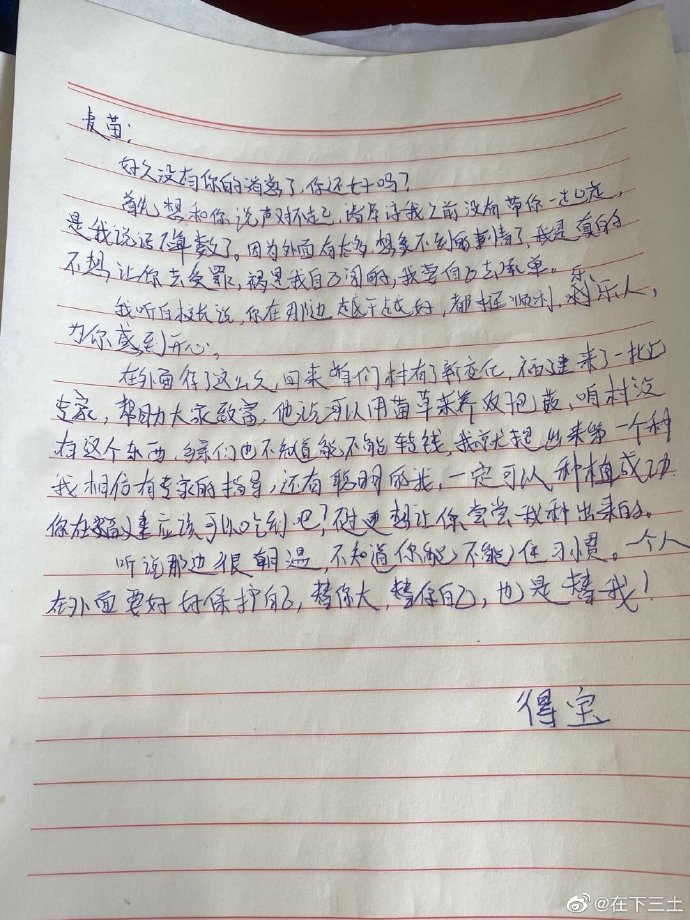 麦苗：
好久没有你的消息了，你还好吗？
首先想和你说声对不起，尚岸许我之前没有带你一起走，
是我说话不算数了。因为外面有太多想象不到的事情了，我是真的
不想让你去受罪，祸是我自己闯的，我要自己去承担。
我听白校长说，你在那边越干越好，都挺顺利，乐人，
为你感到开心。
在外面待了这么久，回来咱们村有了新变化，福建来了一批
专家，帮助大家致富，他说可以用菌草来养双孢菇，咱村没
有这个东西，乡亲们也不知道能不能转钱，我就站出来第一个种
我相信有专家的指导，还有聪明的我，一定可以种植成功
你在福建应该可以吃到吧？不过更想让你尝尝我种出来的。
听说那边很朝温，不知道你能不能住习惯。一个人
在外面要好好保护自己，替你大，替你自己，也是替我！
得宝
@在下三土